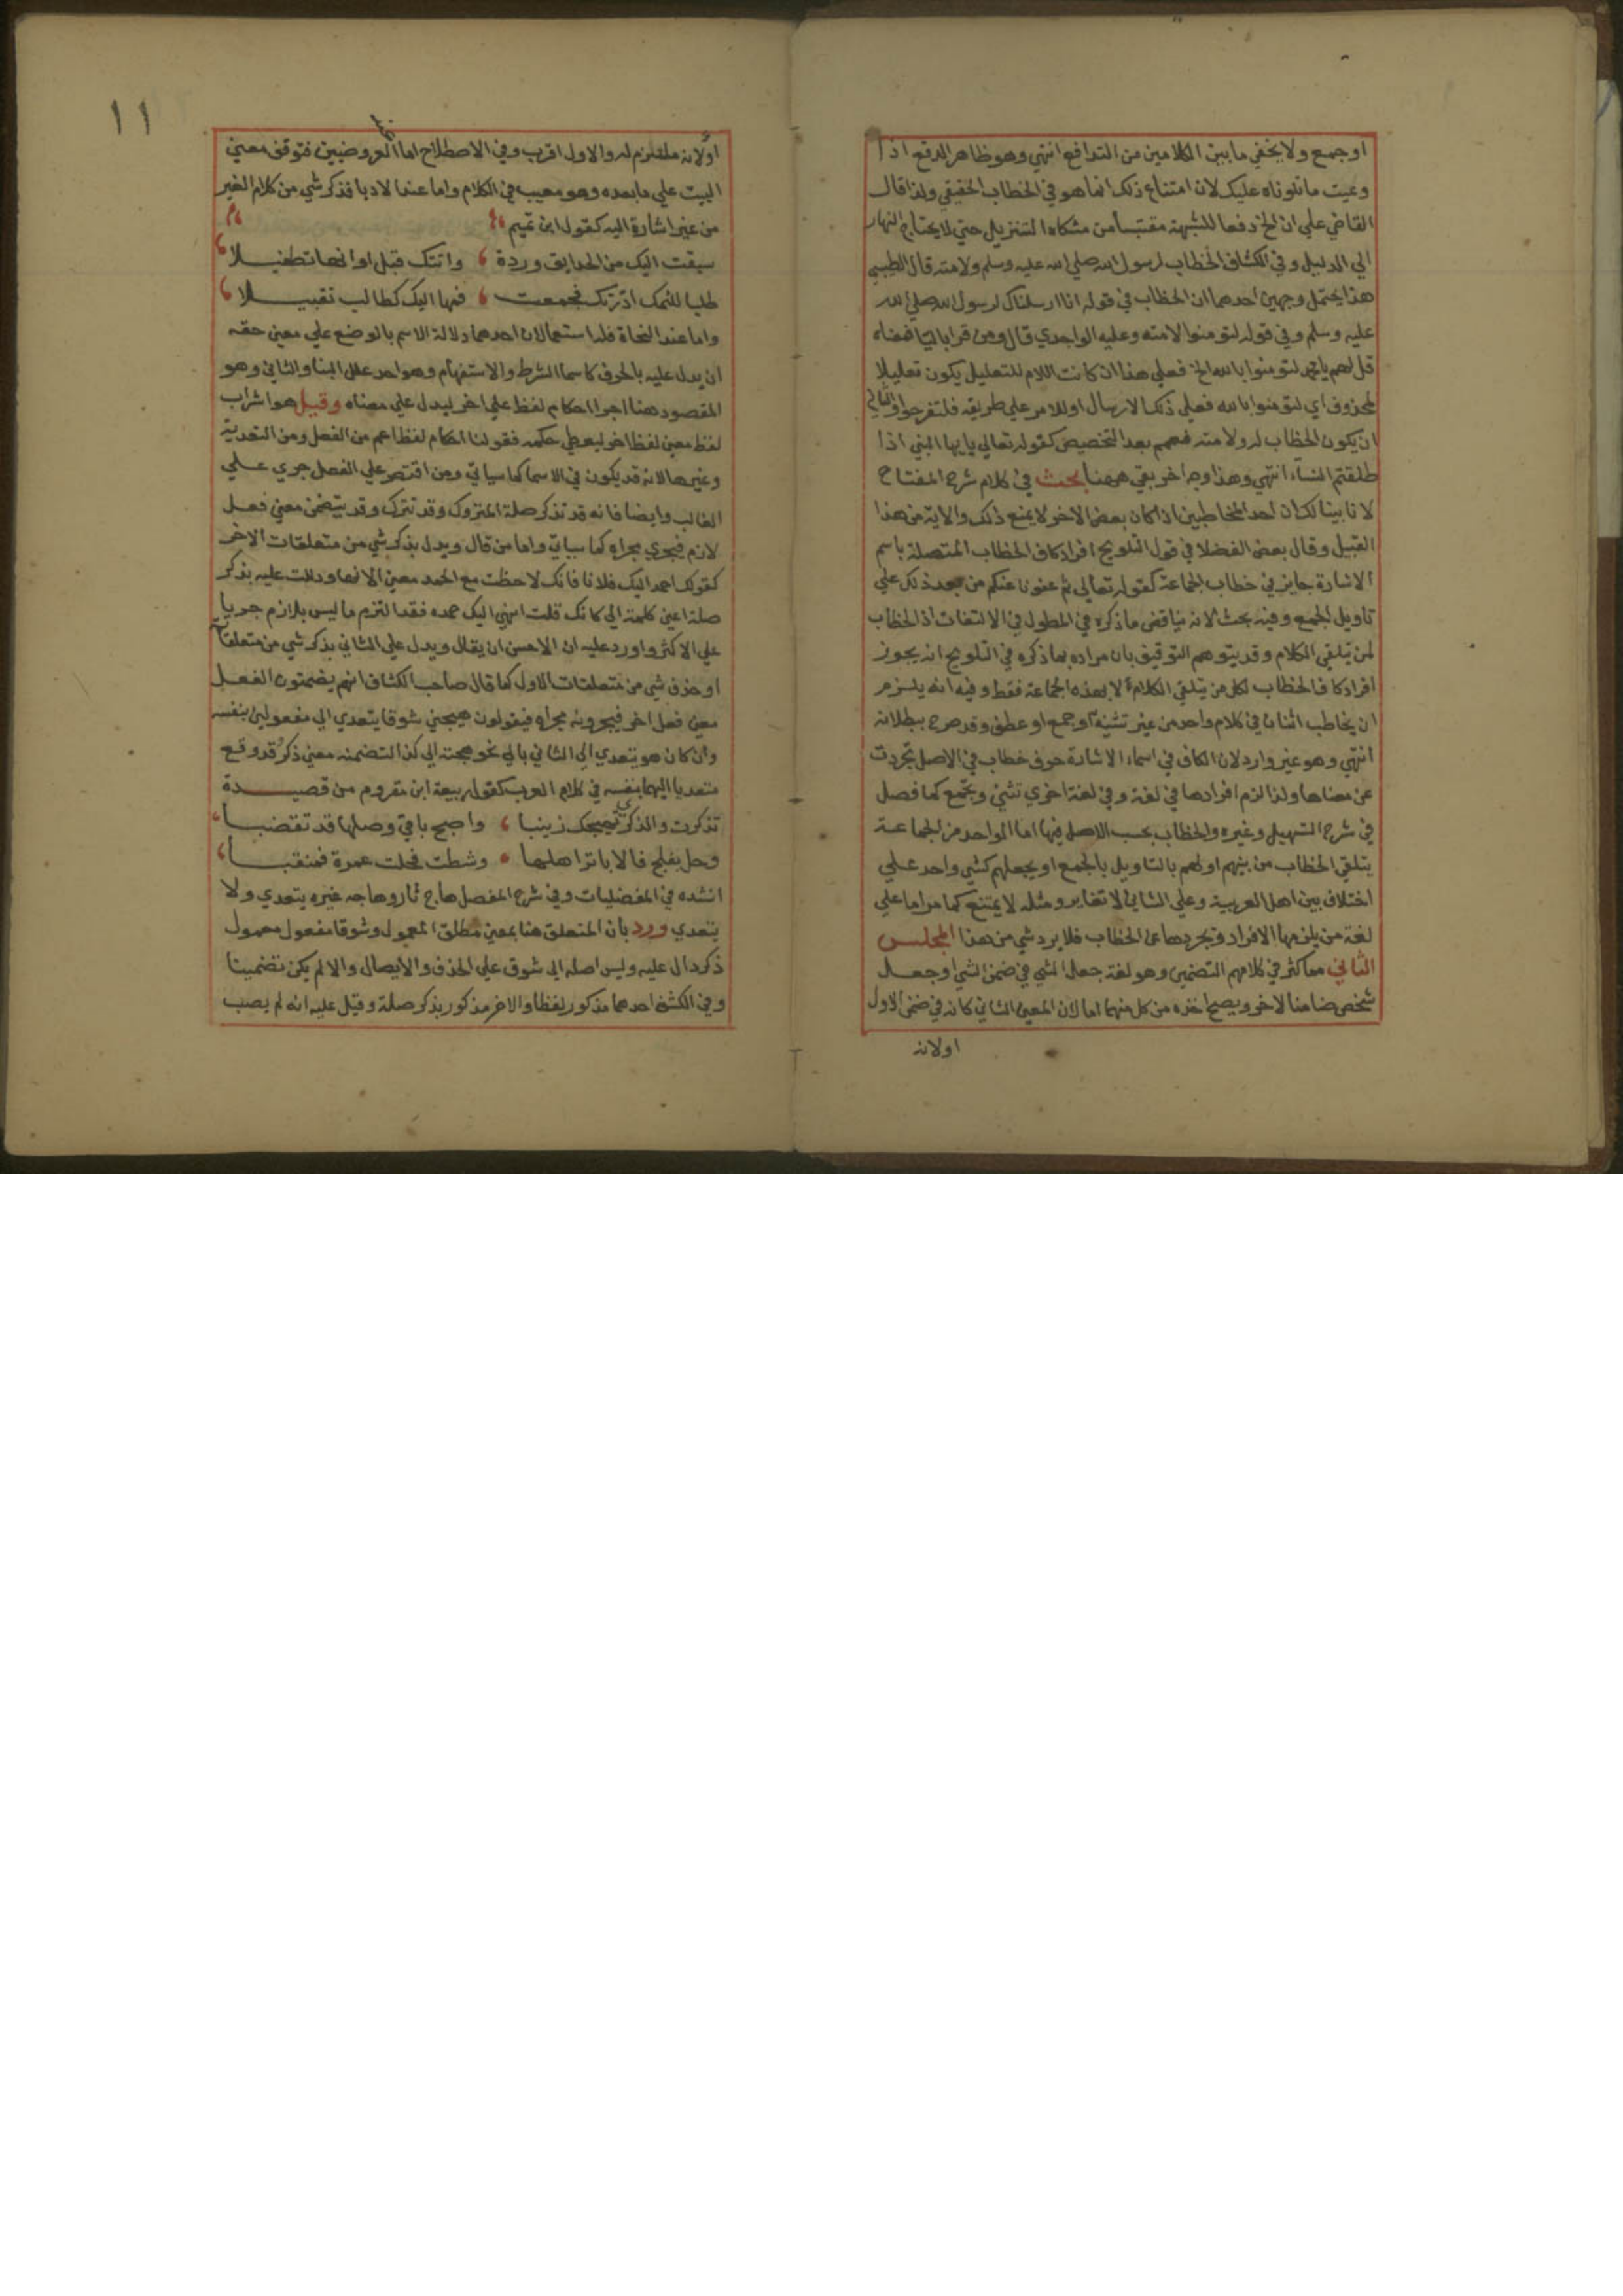 او جمع ولا يخفي ما بين الكلامين من التدافع انتهي وهو ظاهر الدفع اذا
وعيت ما تلوناه عليك لان امتناع ذلك انما هو في الخطاب الحقيقي ولذا قال
القاضي علي ان الخ دفعا للشبهة مقتبسا من مشكاه التنزيل حتي لا يحتاج النهار
الي الدليل وفي الكشاف الخطاب لرسول الله صلي الله عليه وسلم ولامته قال الطيبي
هذا يحتمل وجهين احدهما ان الخطاب في قوله انا ارسلناك لرسول الله صلي الله
عليه وسلم وفي قوله لتومنوا لامته وعليه الواحدي قال ومن قرا باليا فمعناه
قل لهم يا محمد لتومنوا بالله الخ فعلي هذا ان كانت اللام للتعليل يكون تعليلا
لمحذوف اي لتومنوا بالله فعلي ذلك الارسال او للامر علي طريقه فلتفرحوا والثاني
ان يكون الخطاب له ولامته فعمم بعد التخصيص كقوله تعالي يا ايها النبي اذا
طلقتم النساء انتهي وهذا وجه اخر بقي ههنا بحث في كلام شرح المفتاح
لانا بينا لك ان احد المخاطبين اذا كان بعض الاخر لا يمنع ذلك والاية من هذا
القبيل وقال بعض الفضلا في قول التلويح افراد كاف الخطاب المتصلة باسم
الاشارة جايز في خطاب الجماعة كقوله تعالي ثم عفونا عنكم من بعد ذلك علي
تاويل الجمع وفيه بحث لانه يناقض ما ذكره في المطول في الالتفات اذ الخطاب
لمن يتلقي الكلام وقد يتوهم التوفيق بان مراده بما ذكره في التلويح انه يجوز
افراد كاف الخطاب لكل من يتلقي الكلام لا بعده الجماعة فقط وفيه انه يلزم
ان يخاطب اثنان في كلام واحد من غير تثنية او جمع او عطف وقد صرح ببطلانه
انتهي وهو غير وارد لان الكاف في اسماء الاشارة حرف خطاب في الاصل تجردت
عن معناها ولذا لزم افرادها في لغة وفي لغة اخري تثني وتجمع كما فصل
في شرح التسهيل وغيره والخطاب بحسب الاصل فيها اما الواحد من الجماعة
يتلقي الخطاب من بينهم اولهم بالتاويل بالجمع او يجعلهم كشي واحد علي
اختلاف بين اهل العربية وعلي الثاني لا تغاير ومثله لا يمتنع كما مر اما علي
لغة من يلزمها الافراد وتجريدها عن الخطاب فلا يرد شي من هذا المجلس
الثاني مما كثر في كلامهم التضمين وهو لغة جعل الشي في ضمن الشي او جعل
شخص ضامنا لاخر ويصح اخذه من كل منهما اما لان المعني الثاني كانه في ضمن الاول
اولانه
١١
اولانه ملتزم له والاول اقرب وفي الاصطلاح اما العروضيين فتوقف معني
البيت علي ما بعده وهو معيب في الكلام واما عند الادبا فذكر شي من كلام الغير
من غير اشارة اليه كقول ابن تميم
سبقت اليك من الحدايق وردة واتتك قبل اوانها تطفيلا
طلبا للثمك اذ راتك فجمعت فمها اليك كطالب تقبيلا
واما عند النحاة فله استعمالان احدهما دلالة الاسم بالوضع علي معني حقه
ان يدل عليه بالحرف كاسما الشرط والاستفهام وهو احد علل البنا والثاني وهو
المقصود هنا اجرا احكام لفظ علي اخر ليدل علي معناه وقيل هو اشراب
لفظ معني لفظ اخر ليعطي حكمه فقولنا احكام لفظ اعم من الفعل ومن التعدية
وغيرها لانه قد يكون في الاسما كما سياتي ومن اقتصر علي الفعل جري علي
الغالب وايضا فانه قد تذكر صلة المتروك وقد تترك وقد يتضمن معني فعل
لازم فيجري مجراه كما سياتي واما من قال ويدل بذكر شي من متعلقات الاخر
كقولك احمد اليك فلانا فانك لاحظت مع الحمد معني الانها ودللت عليه بذكر
صلة اعني كلمة الي كانك قلت انهي اليك حمده فقد التزم ما ليس بلازم جريا
علي الاكثر واورد عليه ان الاحسن ان يقال ويدل علي الثاني بذكر شي من متعلقاته
او حذف شي من متعلقات الاول كما قال صاحب الكشاف انهم يضمنون الفعل
معني فعل اخر فيجرونه مجراه فيقولون هيجني شوقا يتعدي الي مفعولين بنفسه
وان كان هو يتعدي الي الثاني بالي نحو هيجته الي كذا لتضمنه معني ذكر قد وقع
متعديا اليهما بنفسه في كلام العرب كقول ربيعة ابن مقروم من قصيدة
تذكرت والذكري تهيجك زينبا واصبح باقي وصلها قد تقضبا
وحل بفلج فالاباتر اهلها وشطت فحلت غمرة فمثقبا
انشده في المفضليات وفي شرح المفصل هاج ثار وهاجه غيره يتعدي ولا
يتعدي ورد بان المتعلق هنا بمعني مطلق المعمول وشوقا مفعول معمول
ذكر دال عليه وليس اصله الي شوق علي الحذف والايصال والا لم يكن تضمينا
وفي الكشف احدهما مذكور لفظا والاخر مذكور بذكر صلة وقيل عليه انه لم يصب